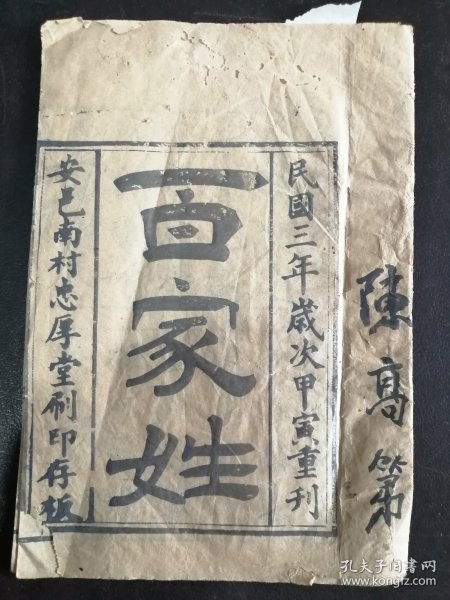 陳高第
民國三年歲次甲寅重刊
百家姓
安邑南村忠厚堂刷印存板
孔夫子旧书网
www.kongfz.com